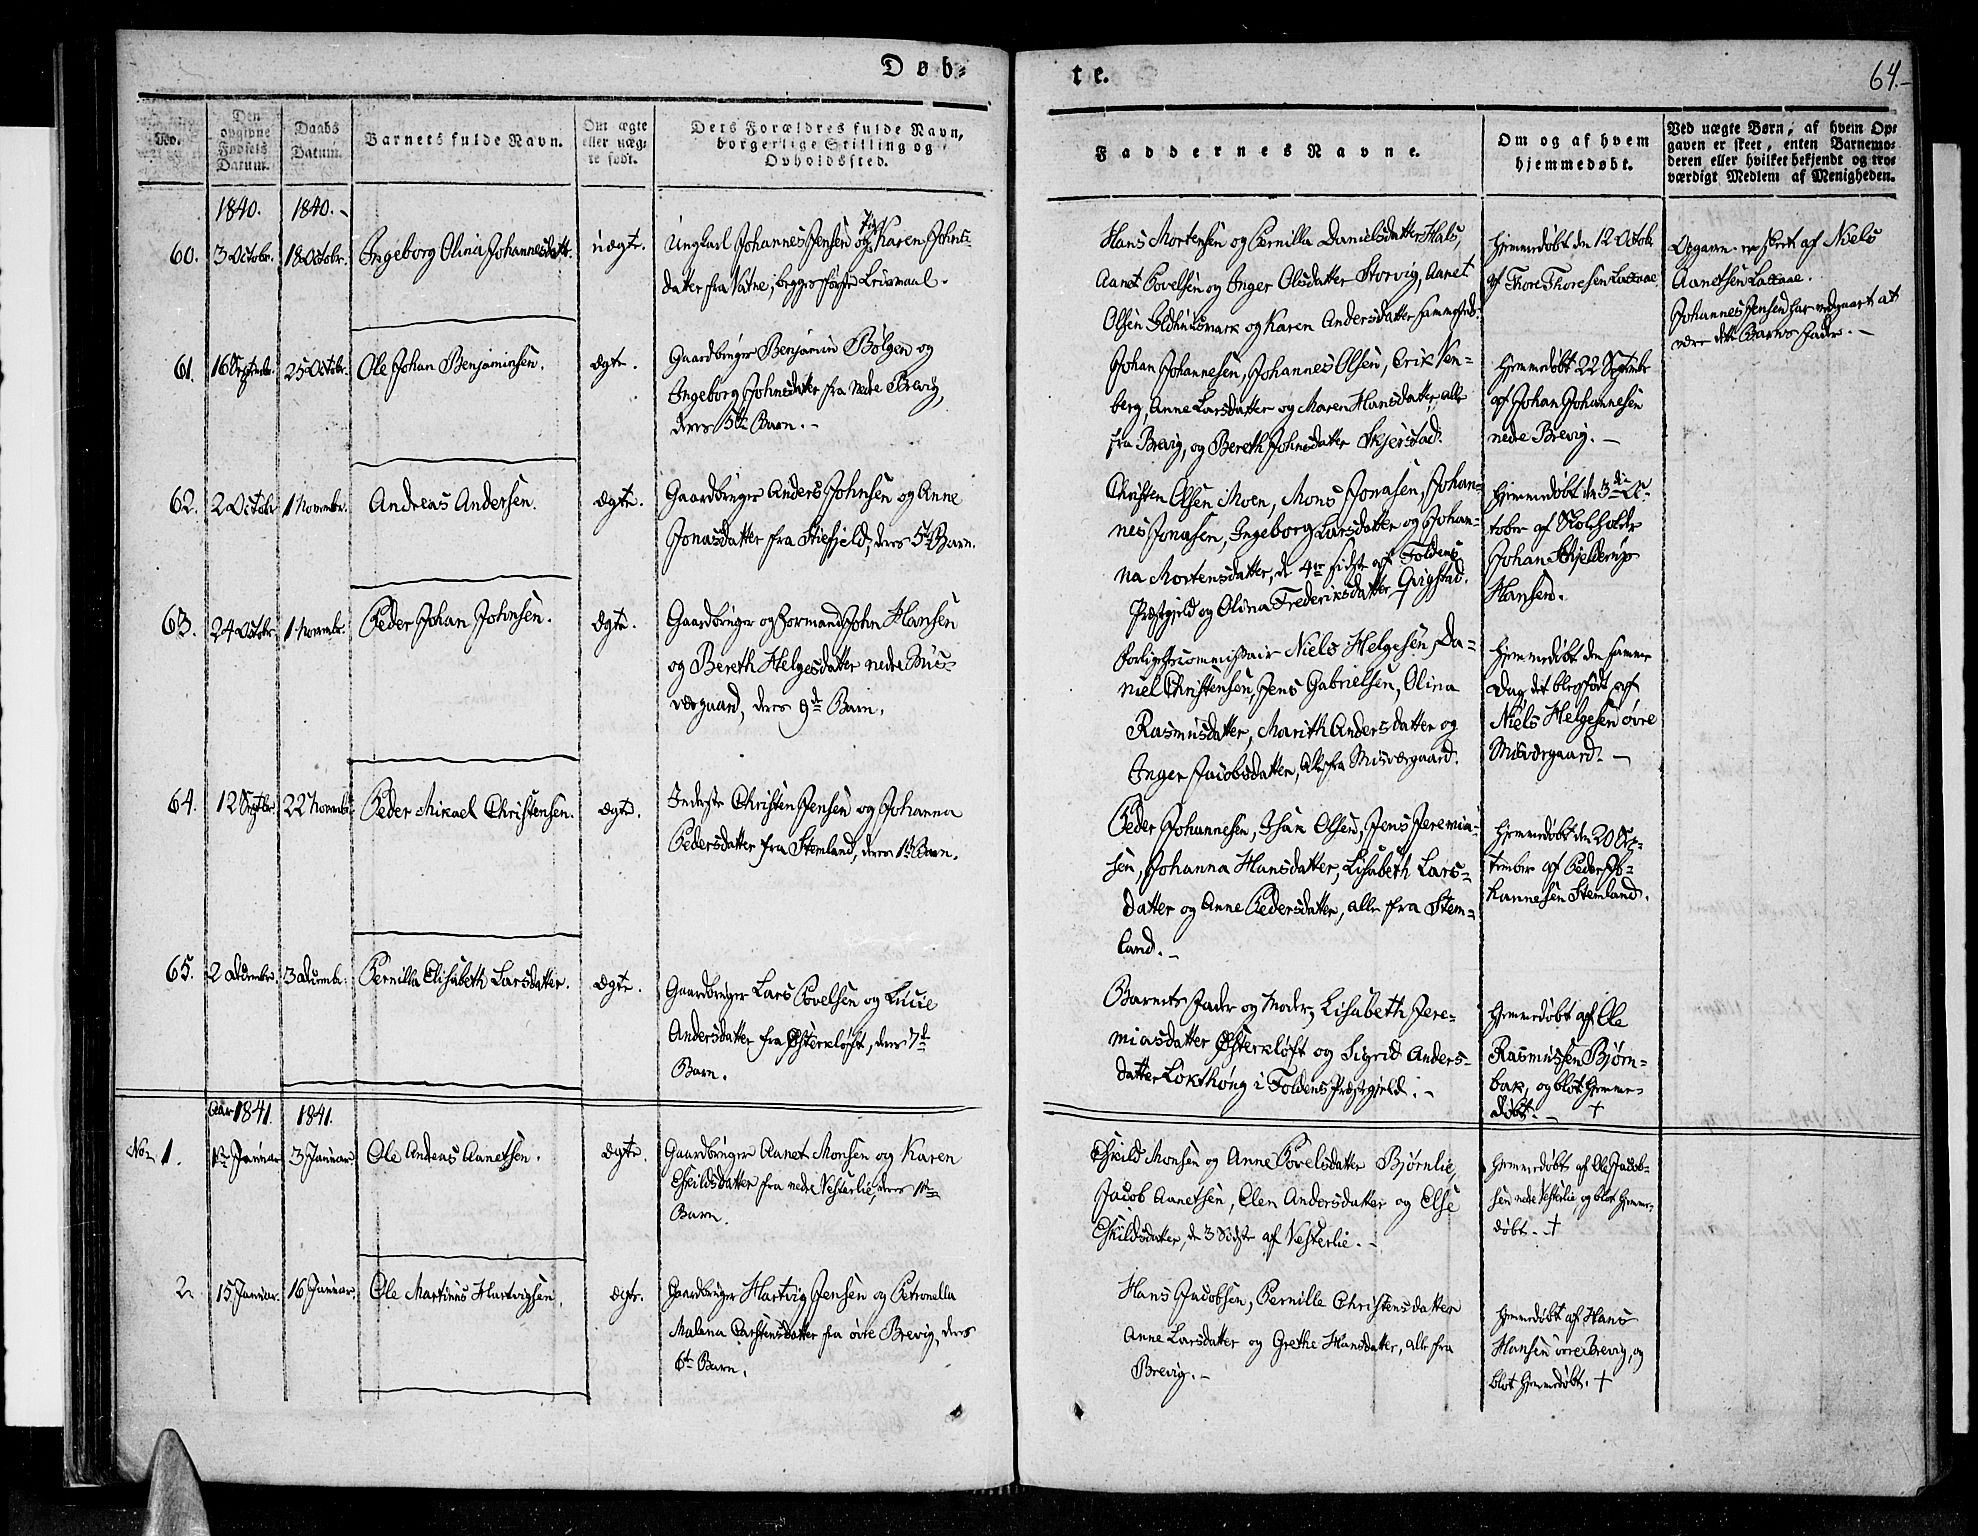 Døb-
te.
64.-
No.
Den opgivne Fødsels Datum.
Daabs Datum.
Barnets fulde Navn.
Om ægte eller uæg-te født.
Dets Forældres fulde Navn, borgerlige Stilling og Opholdssted.
Faddernes Navne.
Om og af hvem hjemmedøbt.
Ved uægte Børn, af hvem Op-
gaven er skeet, enten Barnemo-
deren eller hvilket bekjendt og tro-
værdigt Medlem af Menigheden.
1840. 1840.
60. 3 Octobr. 18 Octobr. Ingeborg Olina Johannesdatt. uægte.
Ungkarl Johannes Jensen og Pige Karen Johns-
datter fra Vatne, begges første Leiermaal.
Hans Mortensen og Pernilla Danielsdatter Hals,
Aanet Povelsen og Inger Olsdatter Storvig, Aanet
Olsen og Karen Andersdatter sammesteds.
Hjemmedøbt den 12 Octobr.
af Thore Thoresen Laxaae.
Opgaven er skeet af Niels
Aanetsen Laxaae.
Johannes Jensen har vedgaaet at
være dette Barns Fader.-
61. 16 Septembr. 25 Octobr. Ole Johan Benjaminsen. ægte.
Gaardbruger Benjamin Bølgen og
Ingeborg Johnsdatter fra nedre Brevig,
deres 5te Barn.-
Johan Johannesen, Johannes Olsen, Erik Ven-
berg, Anne Larsdatter og Maren Hansdatter, alle
fra Brevig, og Bereth Johnsdatter Skjerstad.
Hjemmedøbt 22 Septembr
af Johan Johannesen
nedre Brevig.-
62. 2 Octobr 1 Novembr. Andreas Andersen. ægte.
Gaardbruger Anders Johnsen og Anne
Jonasdatter fra Stiefjeld, deres 5te Barn.
Christen Olsen Moen, Mons Jonasen, Johan-
nes Jonasen, Ingeborg Larsdatter og Johan-
na Mortensdatter, de 4re sidst af Foldens
Præstgjeld og Olina Frederiksdatter Qvigstad.
Hjemmedøbt den 3die Oc-
tober af Skoleholder
Johan Schjelderup
Hansen.
63. 24 Octobr. 1 Novembr. Peder Johan Johnsen. ægte.
Gaardbruger og Formand John Hansen
og Bereth Helgesdatter nedre Mis-
værgaard, deres 9de Barn.
Forligelsescommissair Niels Helgesen, Da-
niel Christensen, Jens Gabrielsen, Olina
Rasmusdatter, Marith Andersdatter og
Inger Jacobsdatter, alle fra Misværgaard.
Hjemmedøbt den samme
Dag det blev født af
Niels Helgesen øvre
Misværgaard.-
64. 12 Septbr. 22 Novembr. Peder Mikael Christensen. ægte.
Inderste Christen Jensen og Johanna
Pedersdatter fra Stemland, deres 1ste Barn.
Peder Johannesen, Isak Olsen, Jens Jeremia-
sen, Johanna Hansdatter, Lisabeth Lars-
datter og Anne Pedersdatter, alle fra Stem-
land.-
Hjemmedøbt den 20 Sep-
tember af Peder Jo-
hannesen Stemland.
65. 2 Decembr. 3 Decembr. Pernilla Elisabeth Larsdatter. ægte.
Gaardbruger Lars Povelsen og Lucie
Andersdatter fra Østerkløft, deres 7de
Barn.
Barnets Fader og Moder, Lisabeth Jere-
miasdatter Østerkløft og Sigrid Anders-
datter i Foldens Præstgjeld.-
Hjemmedøbt af Ole
Rasmussen Bjørn-
bak, og blot hjemme-
døbt.- +
Aar 1841. 1841.
No 1. 1ste Januar 3 Januar Ole Andreas Aanetsen. ægte.
Gaardbruger Aanet Monsen og Karen
Eskildsdatter fra nedre Vesterlie, deres 1ste
Barn.
Eskild Monsen og Anne Povelsdatter Bjørnlie,
Jacob Aanetsen, Elen Andersdatter og Else
Eskildsdatter, de 3 sidste af Vesterlie.-
Hjemmedøbt af Ole Jacob-
sen nedre Vesterlie, og blot hjemme-
døbt.- +
2. 15 Januar. 16 Januar. Ole Martinus Hartvigsen. ægte.
Gaardbruger Hartvig Jensen og Petronella
Malena Carstensdatter fra øvre Brevig, deres
6te Barn.
Hans Jacobsen, Pernille Christensdatter
Anne Larsdatter og Grethe Hansdatter, alle fra
Brevig.-
Hjemmedøbt af Hans
Hansen øvre Brevig, og
blot hjemmedøbt. +